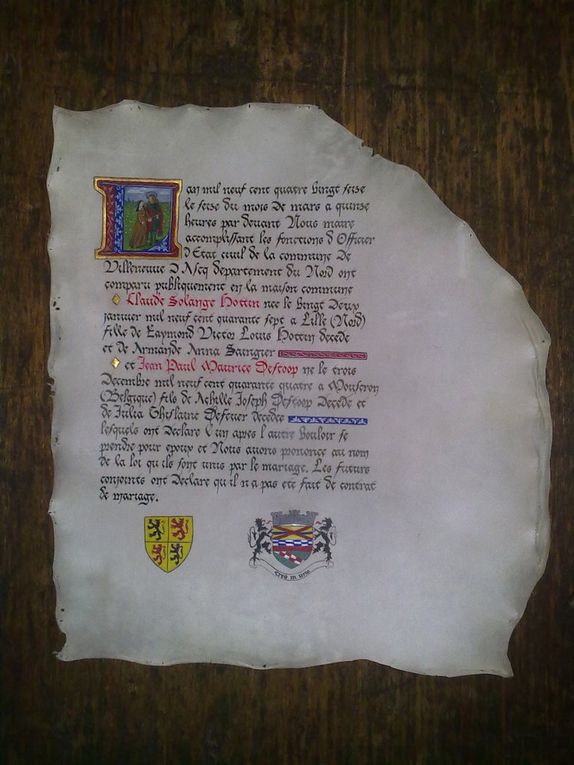 Lan mil neuf cent quatre vingt seise
le seise du mois de mars a quinse
heures par devant Nous maire
accomplissant les fonctions d Officier
d Etat civil de la commune de
Villeneuve D Ascq departement du Nord ont
comparu publiquement en la maison commune
Claude Solange Hottin nee le vingt Deux
janvier mil neuf cent quarante sept a Lille (Nord)
fille de Raymond Victor Louis Hottin decede
et de Armande Anna Saingier
et Jean Paul Maurice Destoop ne le trois
Decembre mil neuf cent quarante quatre a Mouscron
(Belgique) fils de Achille Joseph Destoop Decede et
de Julia Ghislaine Defever decedee
lesquels ont Declare l un apres l autre Vouloir se
prendre pour epoux et Nous avons prononce au nom
de la loi qu ils sont unis par le mariage. Les futurs
conjoints ont Declare qu il n a pas ete fait de contrat
de mariage.